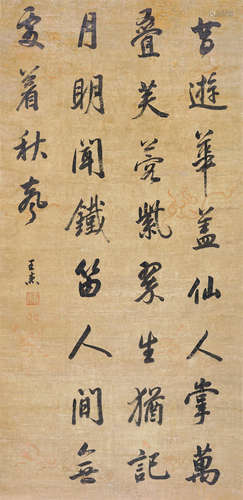 昔遊華盖仙人掌萬
疊芙蓉紫翠生猶記
月明聞鐵笛人間無
處着秋聲
王杰